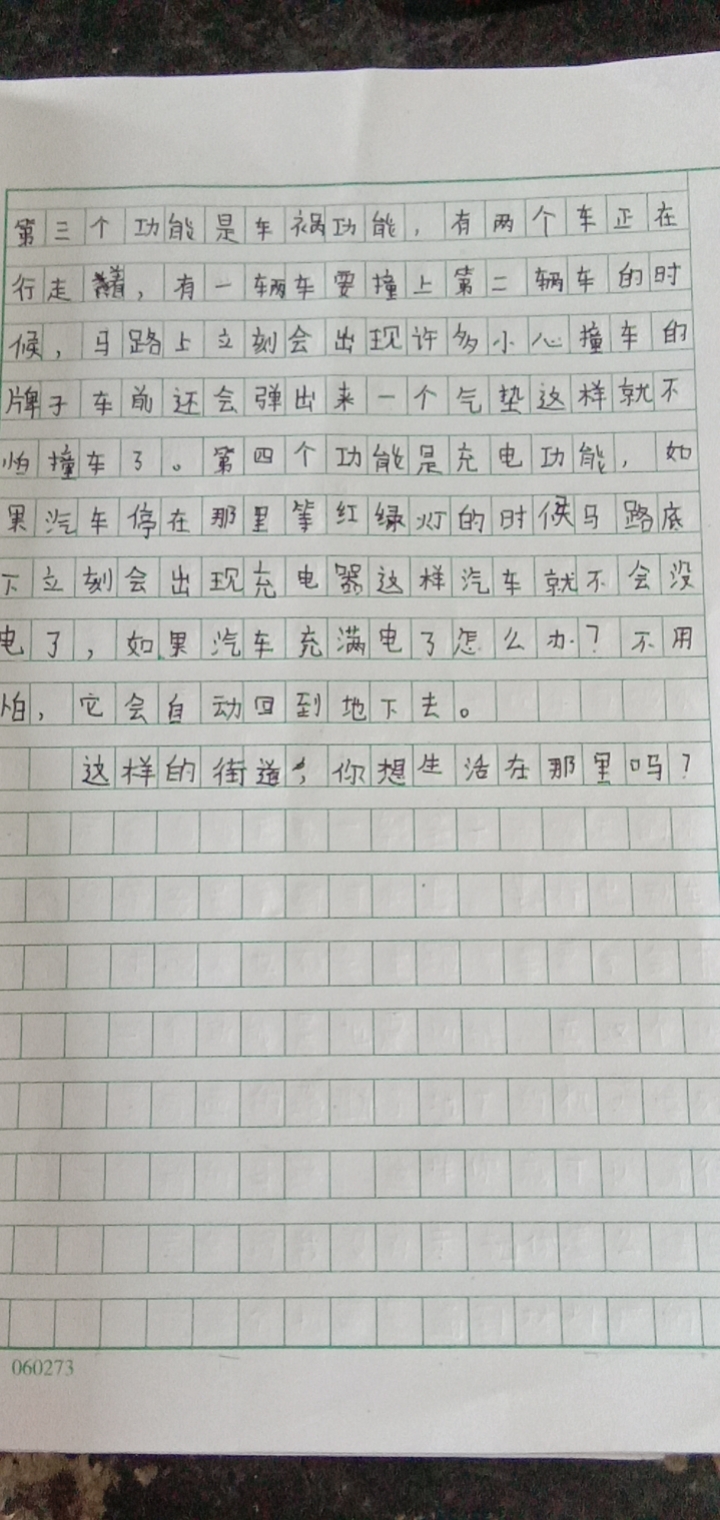 第三个功能是车祸功能，有两个车正在
行走着，有一辆车要撞上第二辆车的时
候，马路上立刻会出现许多小心撞车的
牌子车前还会弹出来一个气垫这样就不
怕撞车了。第四个功能是充电功能，如
果汽车停在那里等红绿灯的时候马路底
下立刻会出现充电器这样汽车就不会没
电了，如果汽车充满电了怎么办？不用
怕，它会自动回到地下去。
这样的街道，你想生活在那里吗？
060273